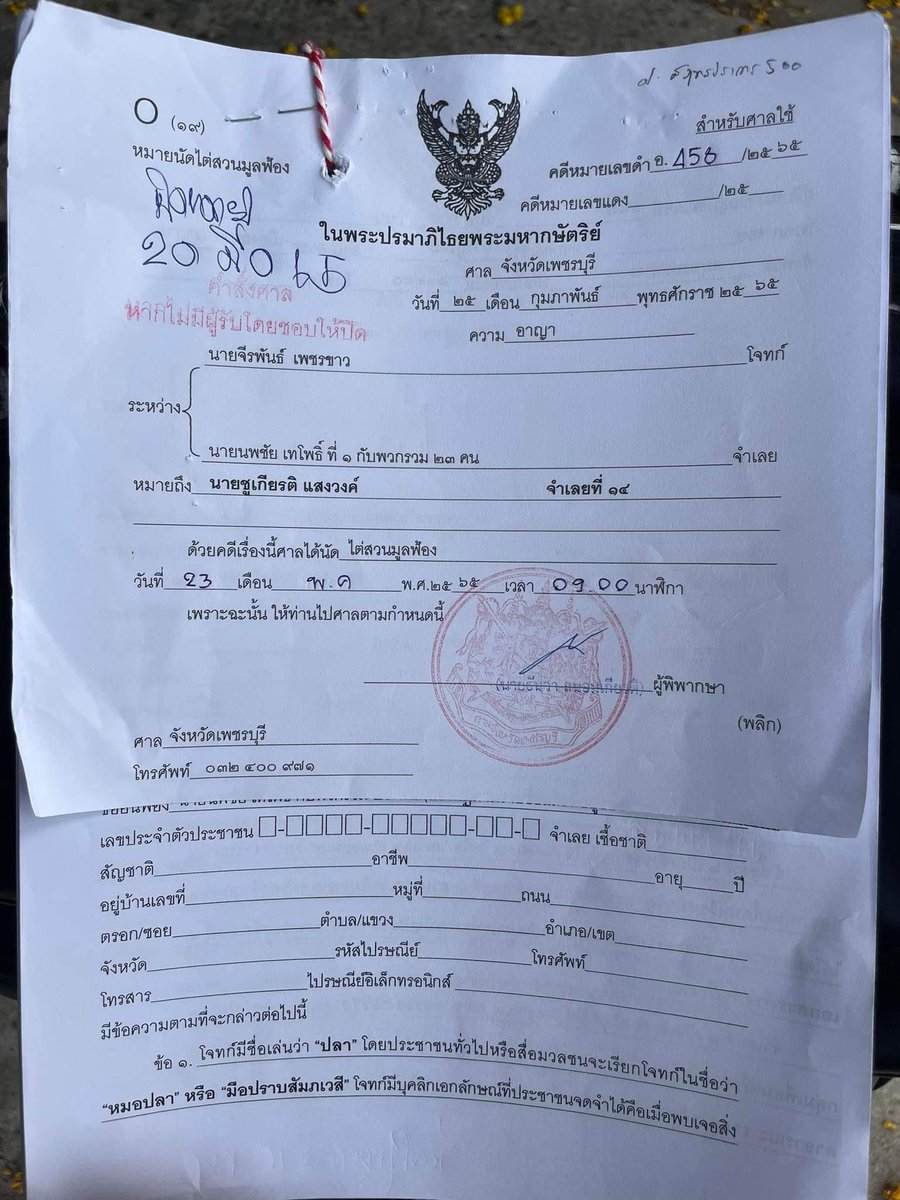 (๑๙)
สำหรับศาลใช้
หมายนัดไต่สวนมูลฟ้อง
คดีหมายเลขดำ อ. 458 /๒๕ ๖๕
คดีหมายเลขแดง /๒๕
ในพระปรมาภิไธยพระมหากษัตริย์
20 มื้อ
คำสั่งศาล
หากไม่มีผู้รับโดยชอบให้ปิด
ศาล จังหวัดเพชรบุรี
วันที่ ๒๕ เดือน กุมภาพันธ์ พุทธศักราช ๒๕ ๖๕
ความ อาญา
นายจีรพันธ์ เพชรขาว โจทก์
ระหว่าง
นายนพชัย เทโพธิ์ ที่ ๑ กับพวกรวม ๒๓ คน จำเลย
หมายถึง นายชูเกียรติ แสงวงค์ จำเลยที่ ๑๔
ด้วยคดีเรื่องนี้ศาลได้นัด ไต่สวนมูลฟ้อง
วันที่ 23 เดือน พ.ค พ.ศ.๒๕ ๖๕ เวลา 09.00 นาฬิกา
เพราะฉะนั้น ให้ท่านไปศาลตามกำหนดนี้
ผู้พิพากษา
(พลิก)
ศาล จังหวัดเพชรบุรี
โทรศัพท์ ๐๓๒ ๔๐๐ ๙๗๑
เลขประจำตัวประชาชน จำเลย เชื้อชาติ
สัญชาติ อาชีพ อายุ ปี
อยู่บ้านเลขที่ หมู่ที่ ถนน
ตรอก/ซอย ตำบล/แขวง อำเภอ/เขต
จังหวัด รหัสไปรษณีย์ โทรศัพท์
โทรสาร ไปรษณีย์อิเล็กทรอนิกส์
มีข้อความตามที่จะกล่าวต่อไปนี้
ข้อ ๑. โจทก์มีชื่อเล่นว่า “ปลา” โดยประชาชนทั่วไปหรือสื่อมวลชนจะเรียกโจทก์ในชื่อว่า
“หมอปลา” หรือ “มือปราบสัมภเวสี” โจทก์มีบุคลิกเอกลักษณ์ที่ประชาชนจดจำได้คือเมื่อพบเจอสิ่ง